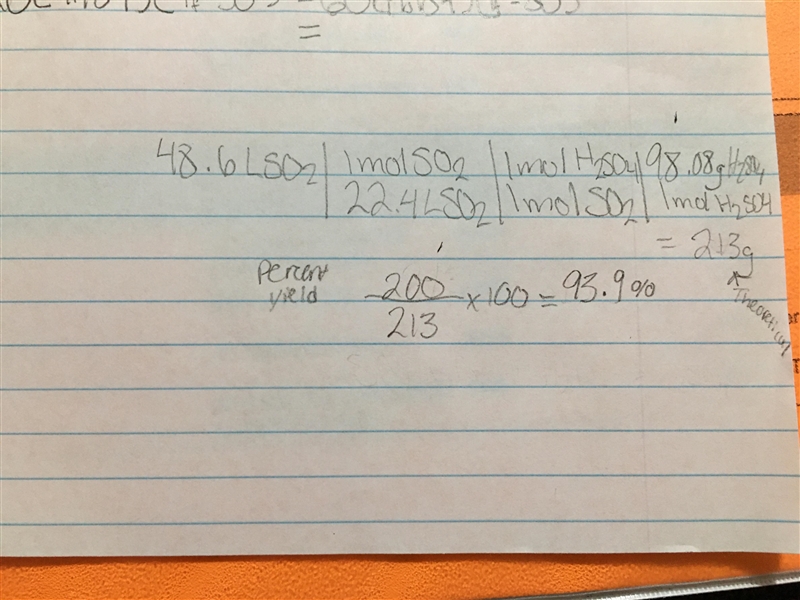 48.6 L SO₂ | 1 mol SO₂ | 1 mol H₂SO₄ | 98.08 g H₂SO₄
22.4 L SO₂ | 1 mol SO₂ | 1 mol H₂SO4
= 213g
Percent yield
200
213
× 100 = 93.9%
Theoretical